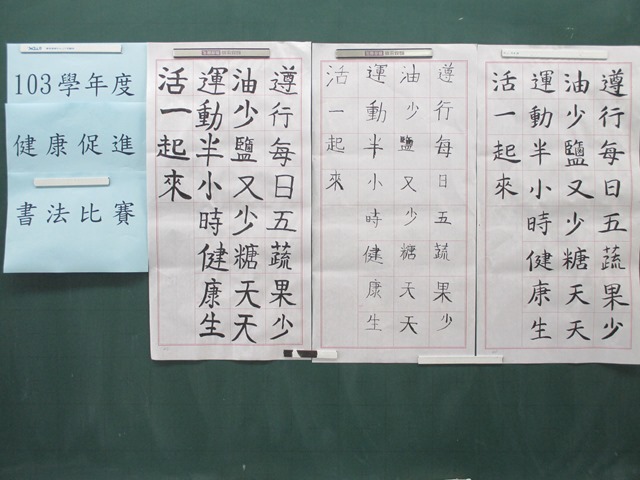 103學年度
健康促進
書法比賽
遵行每日五蔬果少
油少鹽又少糖天天
運動半小時健康生
活一起來
遵行每日五蔬果少
油少鹽又少糖天天
運動半小時健康生
活一起來
遵行每日五蔬果少
油少鹽又少糖天天
運動半小時健康生
活一起來